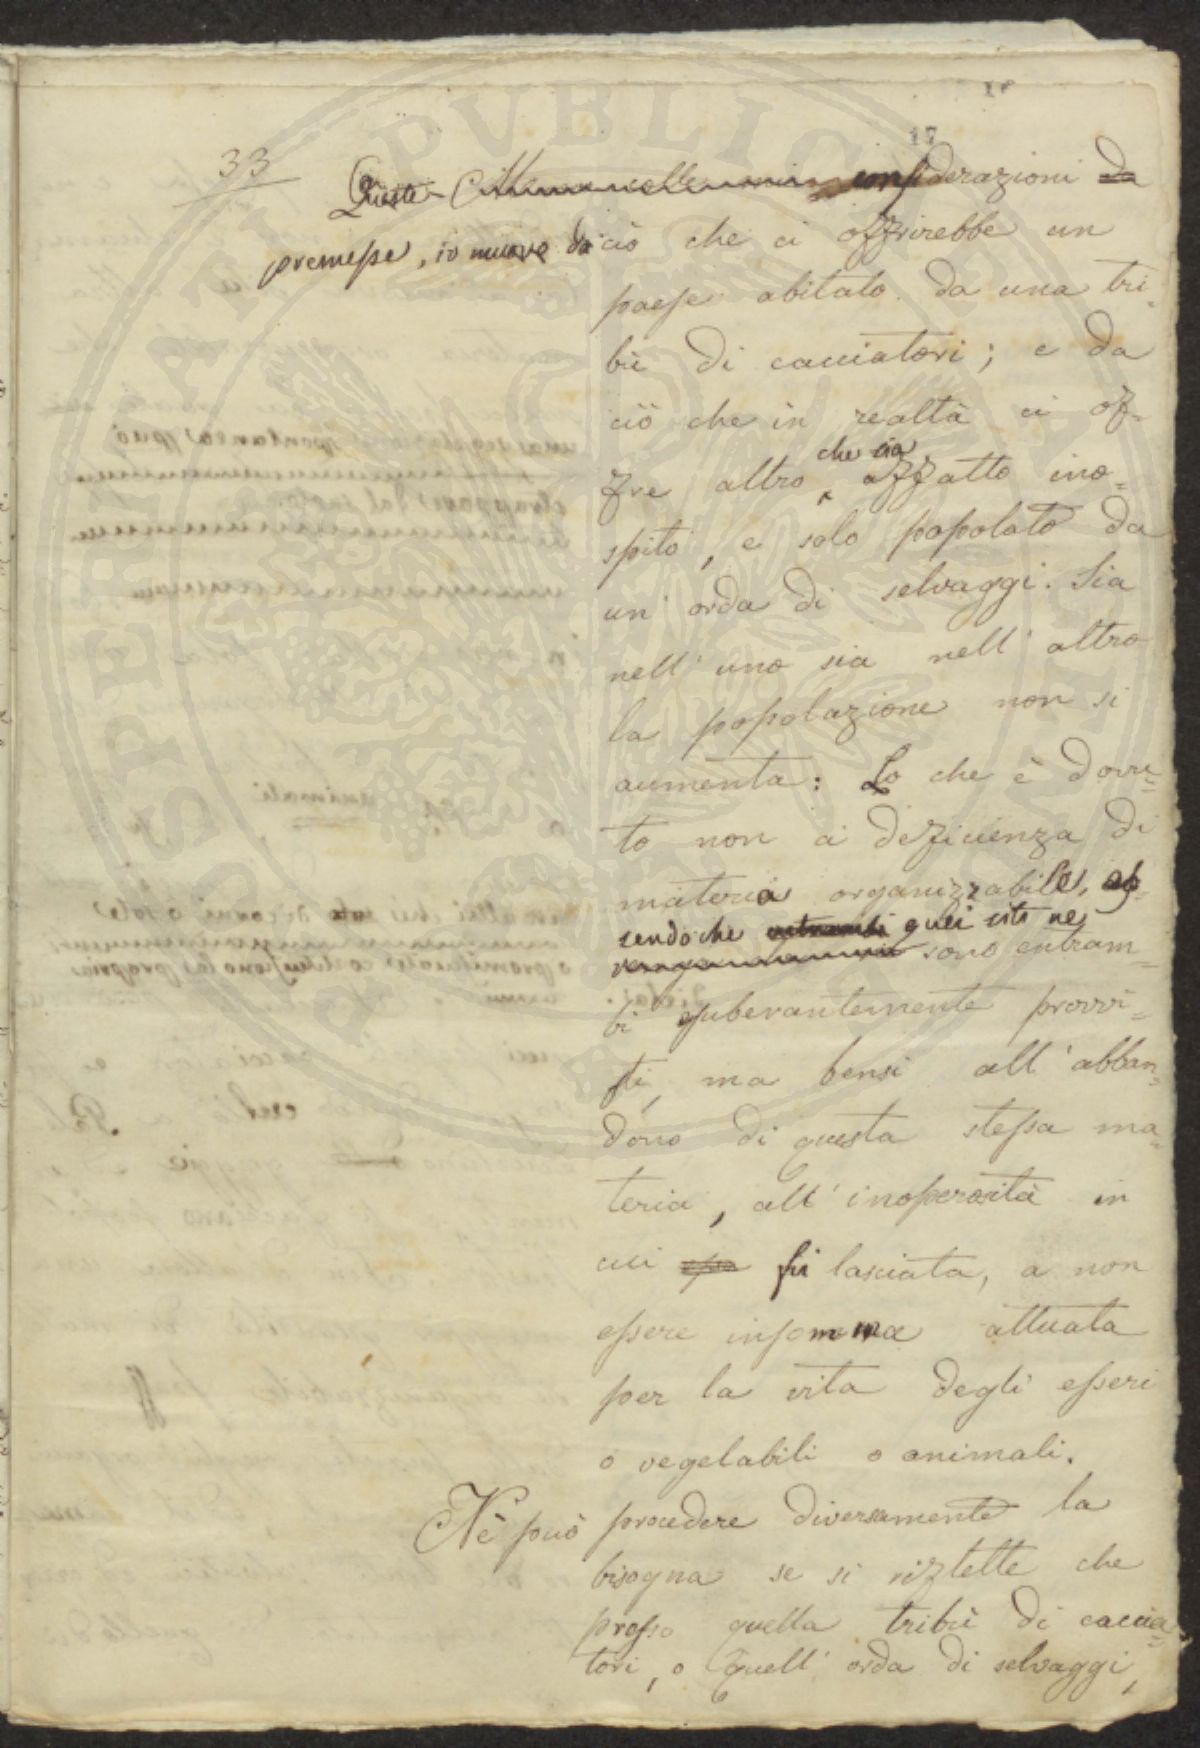 17
33
Queste considerazioni da
premesse, io muovo da ciò che ci offrirebbe un
paese abitato da una tri-
bù di cacciatori; e da
ciò che in realtà ci of-
che sia
fre altro affatto ino-
spito, e solo popolato da
un' orda di selvaggi. Sia
nell' uno sia nell' altro
la popolazione non si
aumenta: Lo che è dovu-
to non a deficienza di
materia organizzabile, es-
sendoche entrambi quei siti ne
sono entram-
bi esuberantemente provvi-
sti, ma bensì all' abban-
dono di questa stessa ma-
teria, all' inoperosità in
cui essa fu lasciata, a non
essere insomma attuata
per la vita degli esseri
o vegetabili o animali.
Nè può procedere diversamente la
bisogna se si riflette che
presso quella tribù di caccia-
tori, o quell' orda di selvaggi,